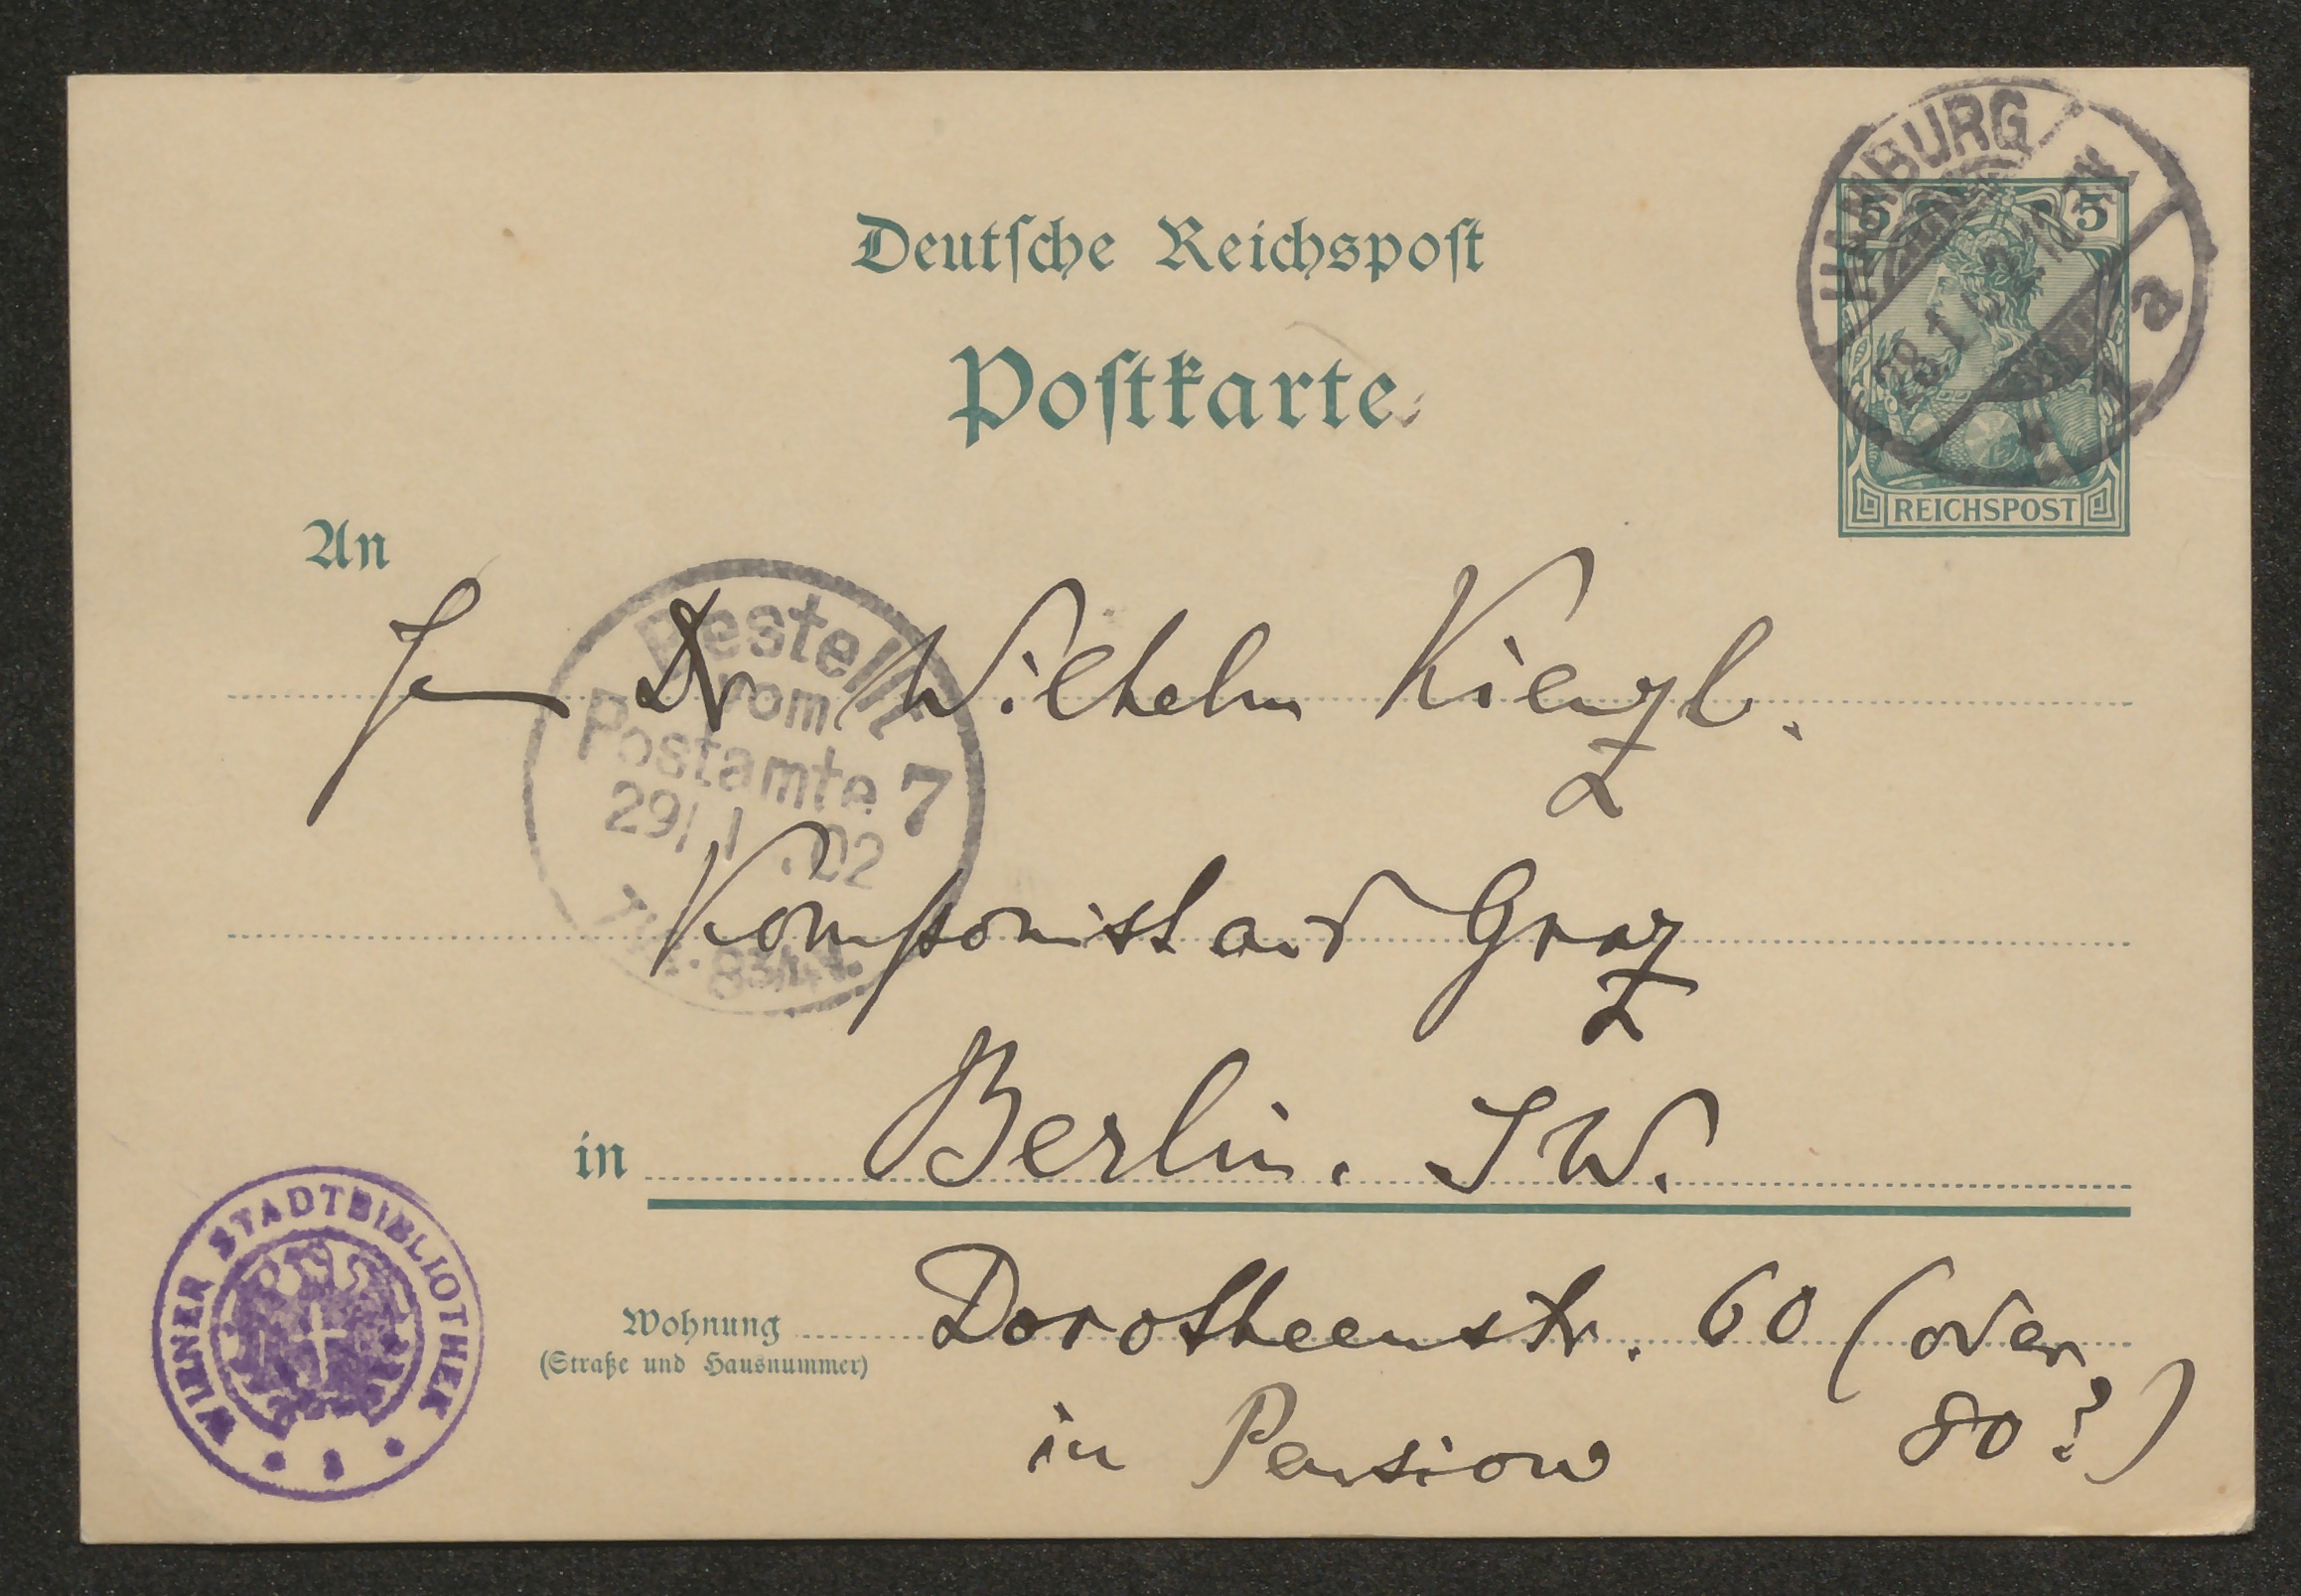 Deutsche Reichspost
Postkarte
HAMBURG
28.1.
a
1
5 5
REICHSPOST
An
Dr Wilhelm Kienzl.
Bestellt
vom
Postamte 7
29/1.02
Komponist aus Graz
in Berlin. SW.
Wohnung Dorotheenstr. 60 (oder
(Straße und Hausnummer)
in Pension 80?)
WIENER STADTBIBLIOTHEK